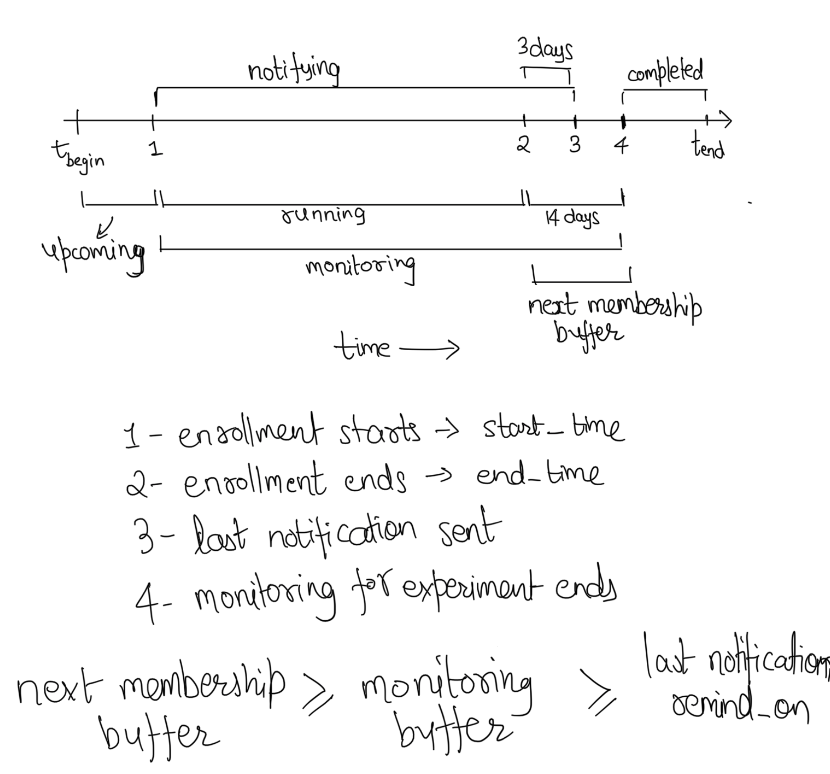 3 days
notifying
completed
t begin
1
2
3
4
t end
running
14 days
upcoming
monitoring
next membership
buffer
time →
1 - enrollment starts → start_time
2 - enrollment ends → end_time
3 - last notification sent
4 - monitoring for experiment ends
next membership buffer ≥ monitoring buffer ≥ last notification remind_on